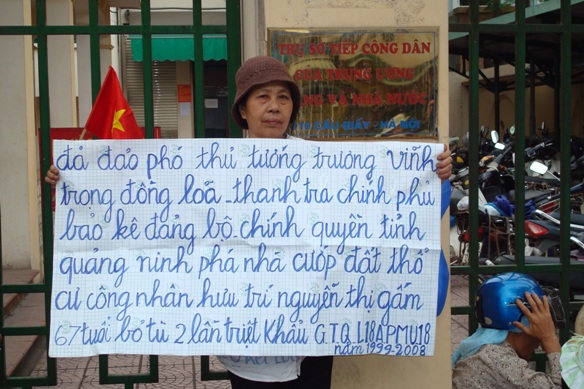 TRỤ SỞ TIẾP CÔNG DÂN
CỦA TRUNG ƯƠNG
VÀ NHÀ NƯỚC
CẦU GIẤY - HÀ NỘI
đả đảo phó thủ tướng trương vĩnh
trọng đồng loã - thanh tra chính phủ
bảo kê đảng bộ - chính quyền tỉnh
quảng ninh phá nhà cướp đất thổ
cư công nhân hưu trí nguyễn thị gấm
67 tuổi bỏ tù 2 lần triệt khẩu G.T.Q. L18A PMU18
năm 1999-2008